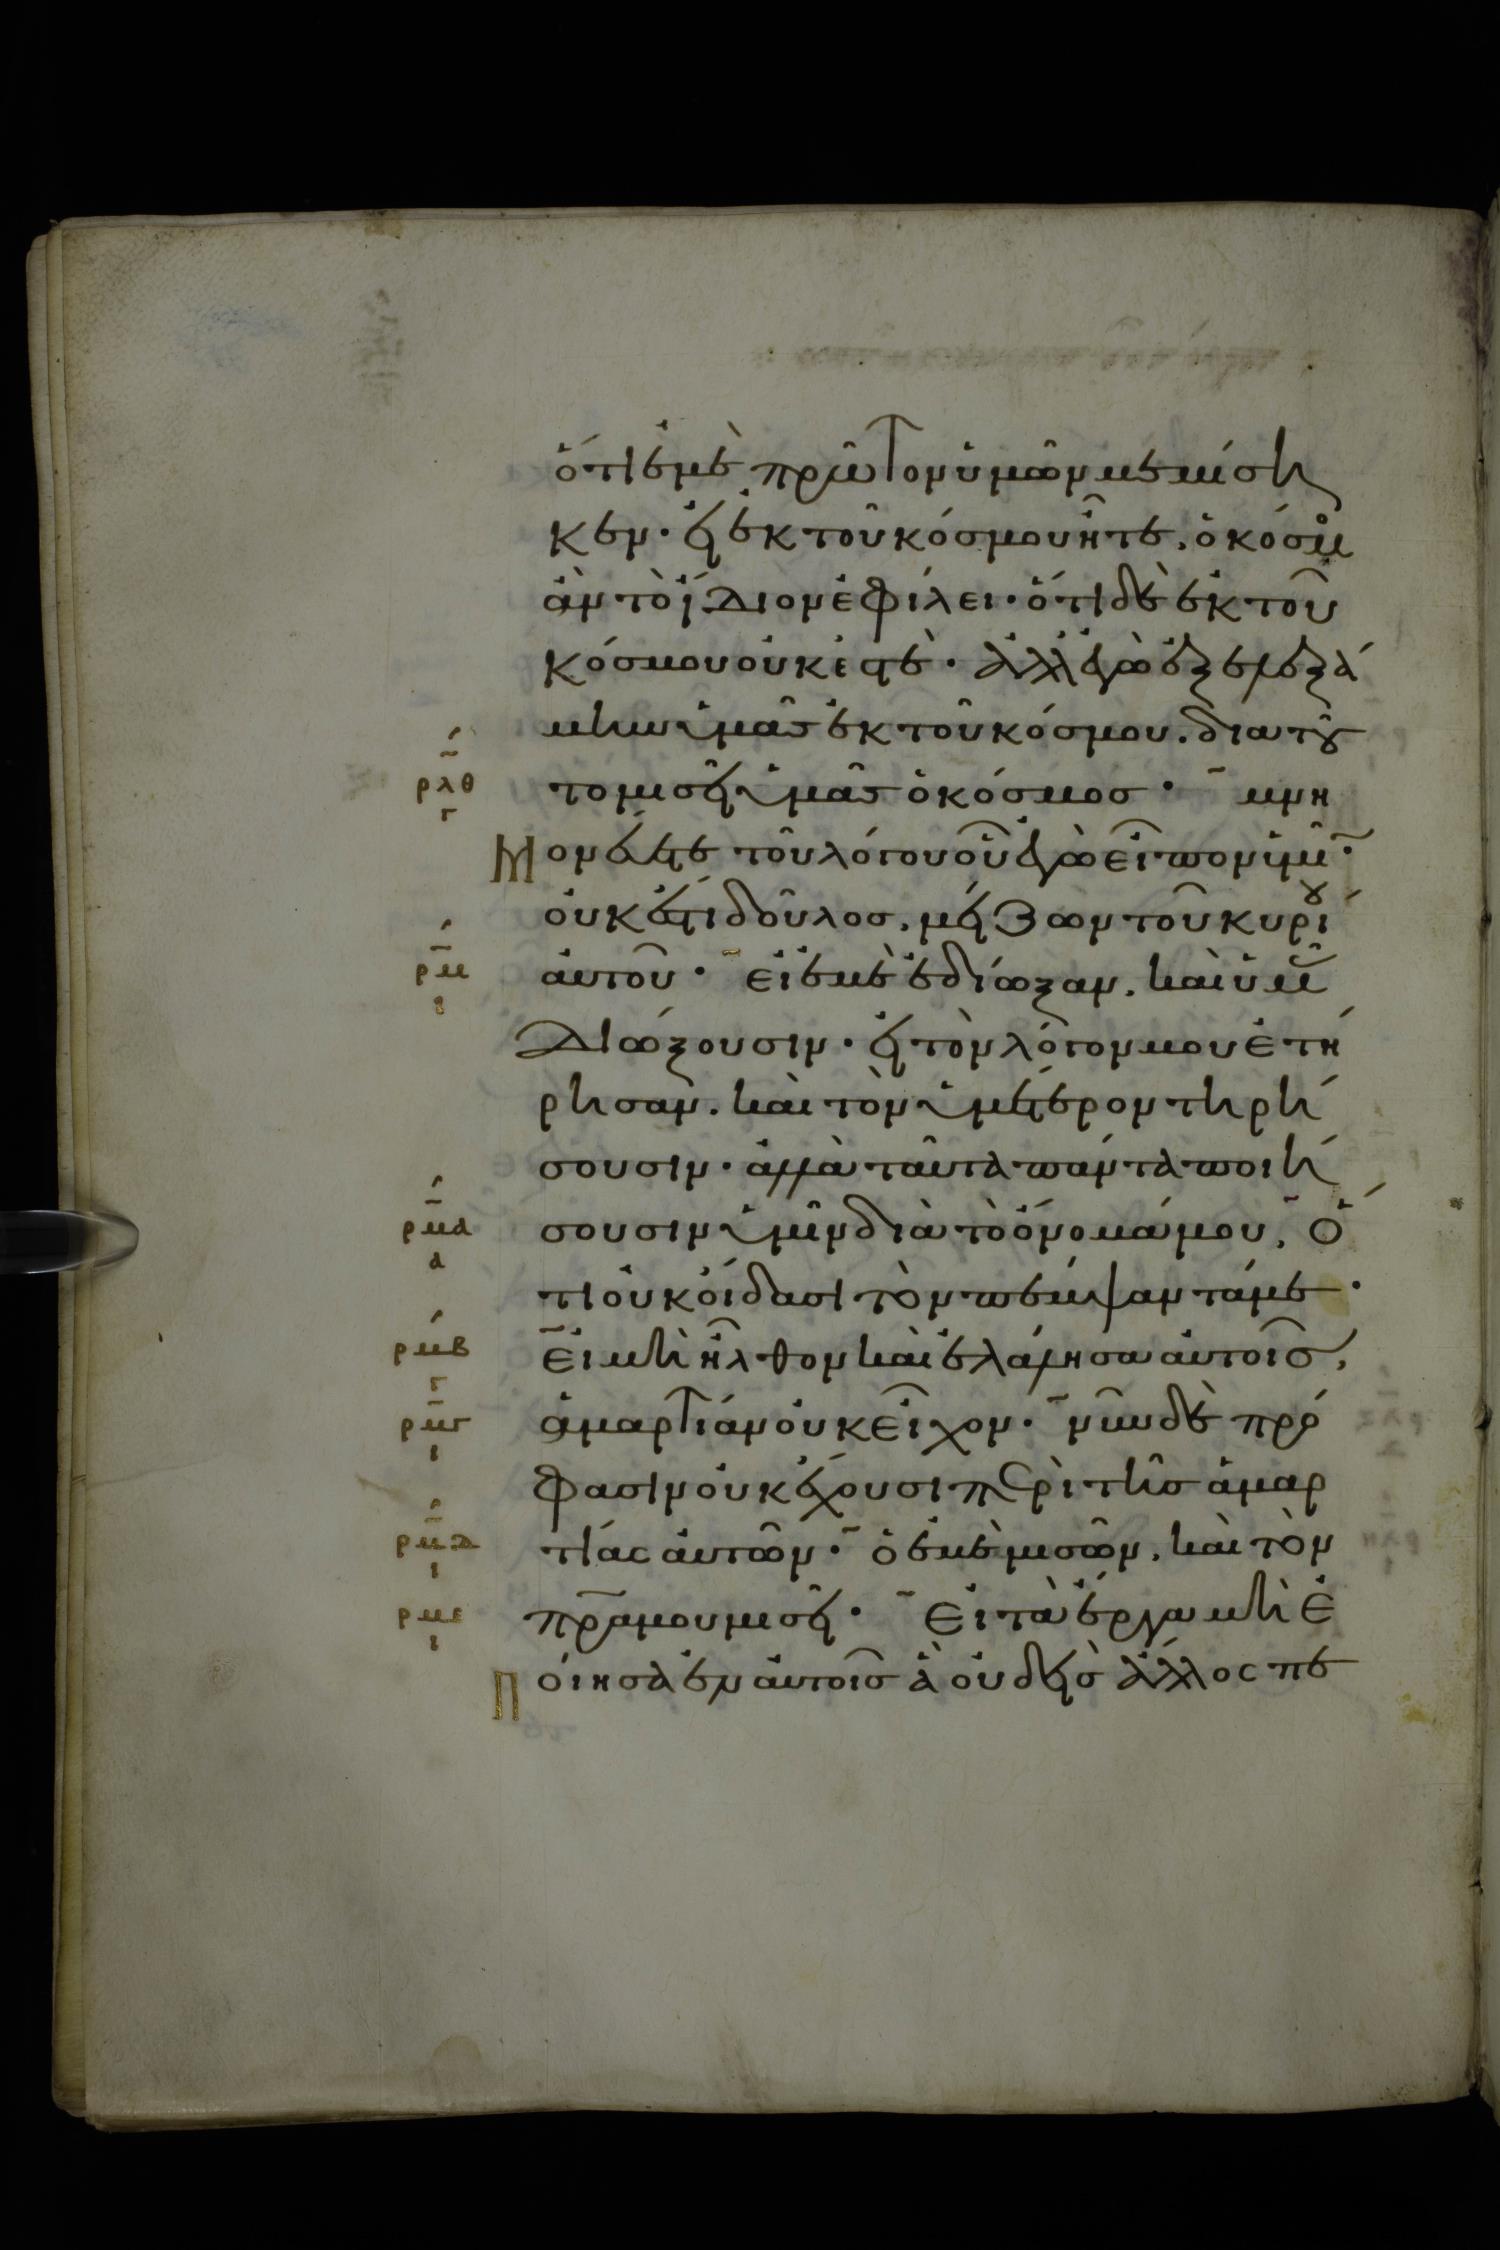 ὅτι ἐμὲ πρῶτον ὑμῶν μεμίση
κεν· εἰ ἐκ τοῦ κόσμου ἦτε, ὁ κόσμος
ἂν τὸ ἴδιον ἐφίλει· ὅτι δὲ ἐκ τοῦ
κόσμου οὐκ ἐστὲ· ἀλλ ἐγὼ ἐξελεξά
μην ὑμᾶς ἐκ τοῦ κόσμου. δια τοῦ
ρλθ γ το μισεῖ ὑμᾶς ὁ κόσμος· μνη
Μονεύετε τοῦ λόγου οὗ ἐγὼ εἶπον ὑμῖν·
οὐκ ἔστι δοῦλος, μείζων τοῦ κυρίου
ρμ αὐτοῦ· εἰ ἐμὲ ἐδίωξαν, καὶ ὑμᾶς
διώξουσιν· εἰ τὸν λόγον μου ἐτή
ρησαν. καὶ τὸν ὑμέτερον τηρή
σουσιν· ἀλλὰ ταῦτα πάντα ποιή
ρμα α σουσιν ὑμῖν διὰ τὸ ὄνομά μου, ὅ
τι οὐκ οἴδασι τὸν πέμψαντά με·
ρμβ εἰ μὴ ἦλθον καὶ ἐλάλησα αὐτοῖς,
ρμγ ι ἁμαρτίαν οὐκ εἶχον· νῦν δὲ πρό
φασιν οὐκ ἔχουσι περὶ τῆς ἁμαρ
ρμδ ι τίας αὐτῶν· ὁ ἐμὲ μισῶν, καὶ τὸν
ρμε ι πρα μου μισεῖ· εἰ τὰ ἔργα μὴ ἐ
Ποίησα ἐν αὐτοῖς ἃ οὐδεὶς ἄλλος πε